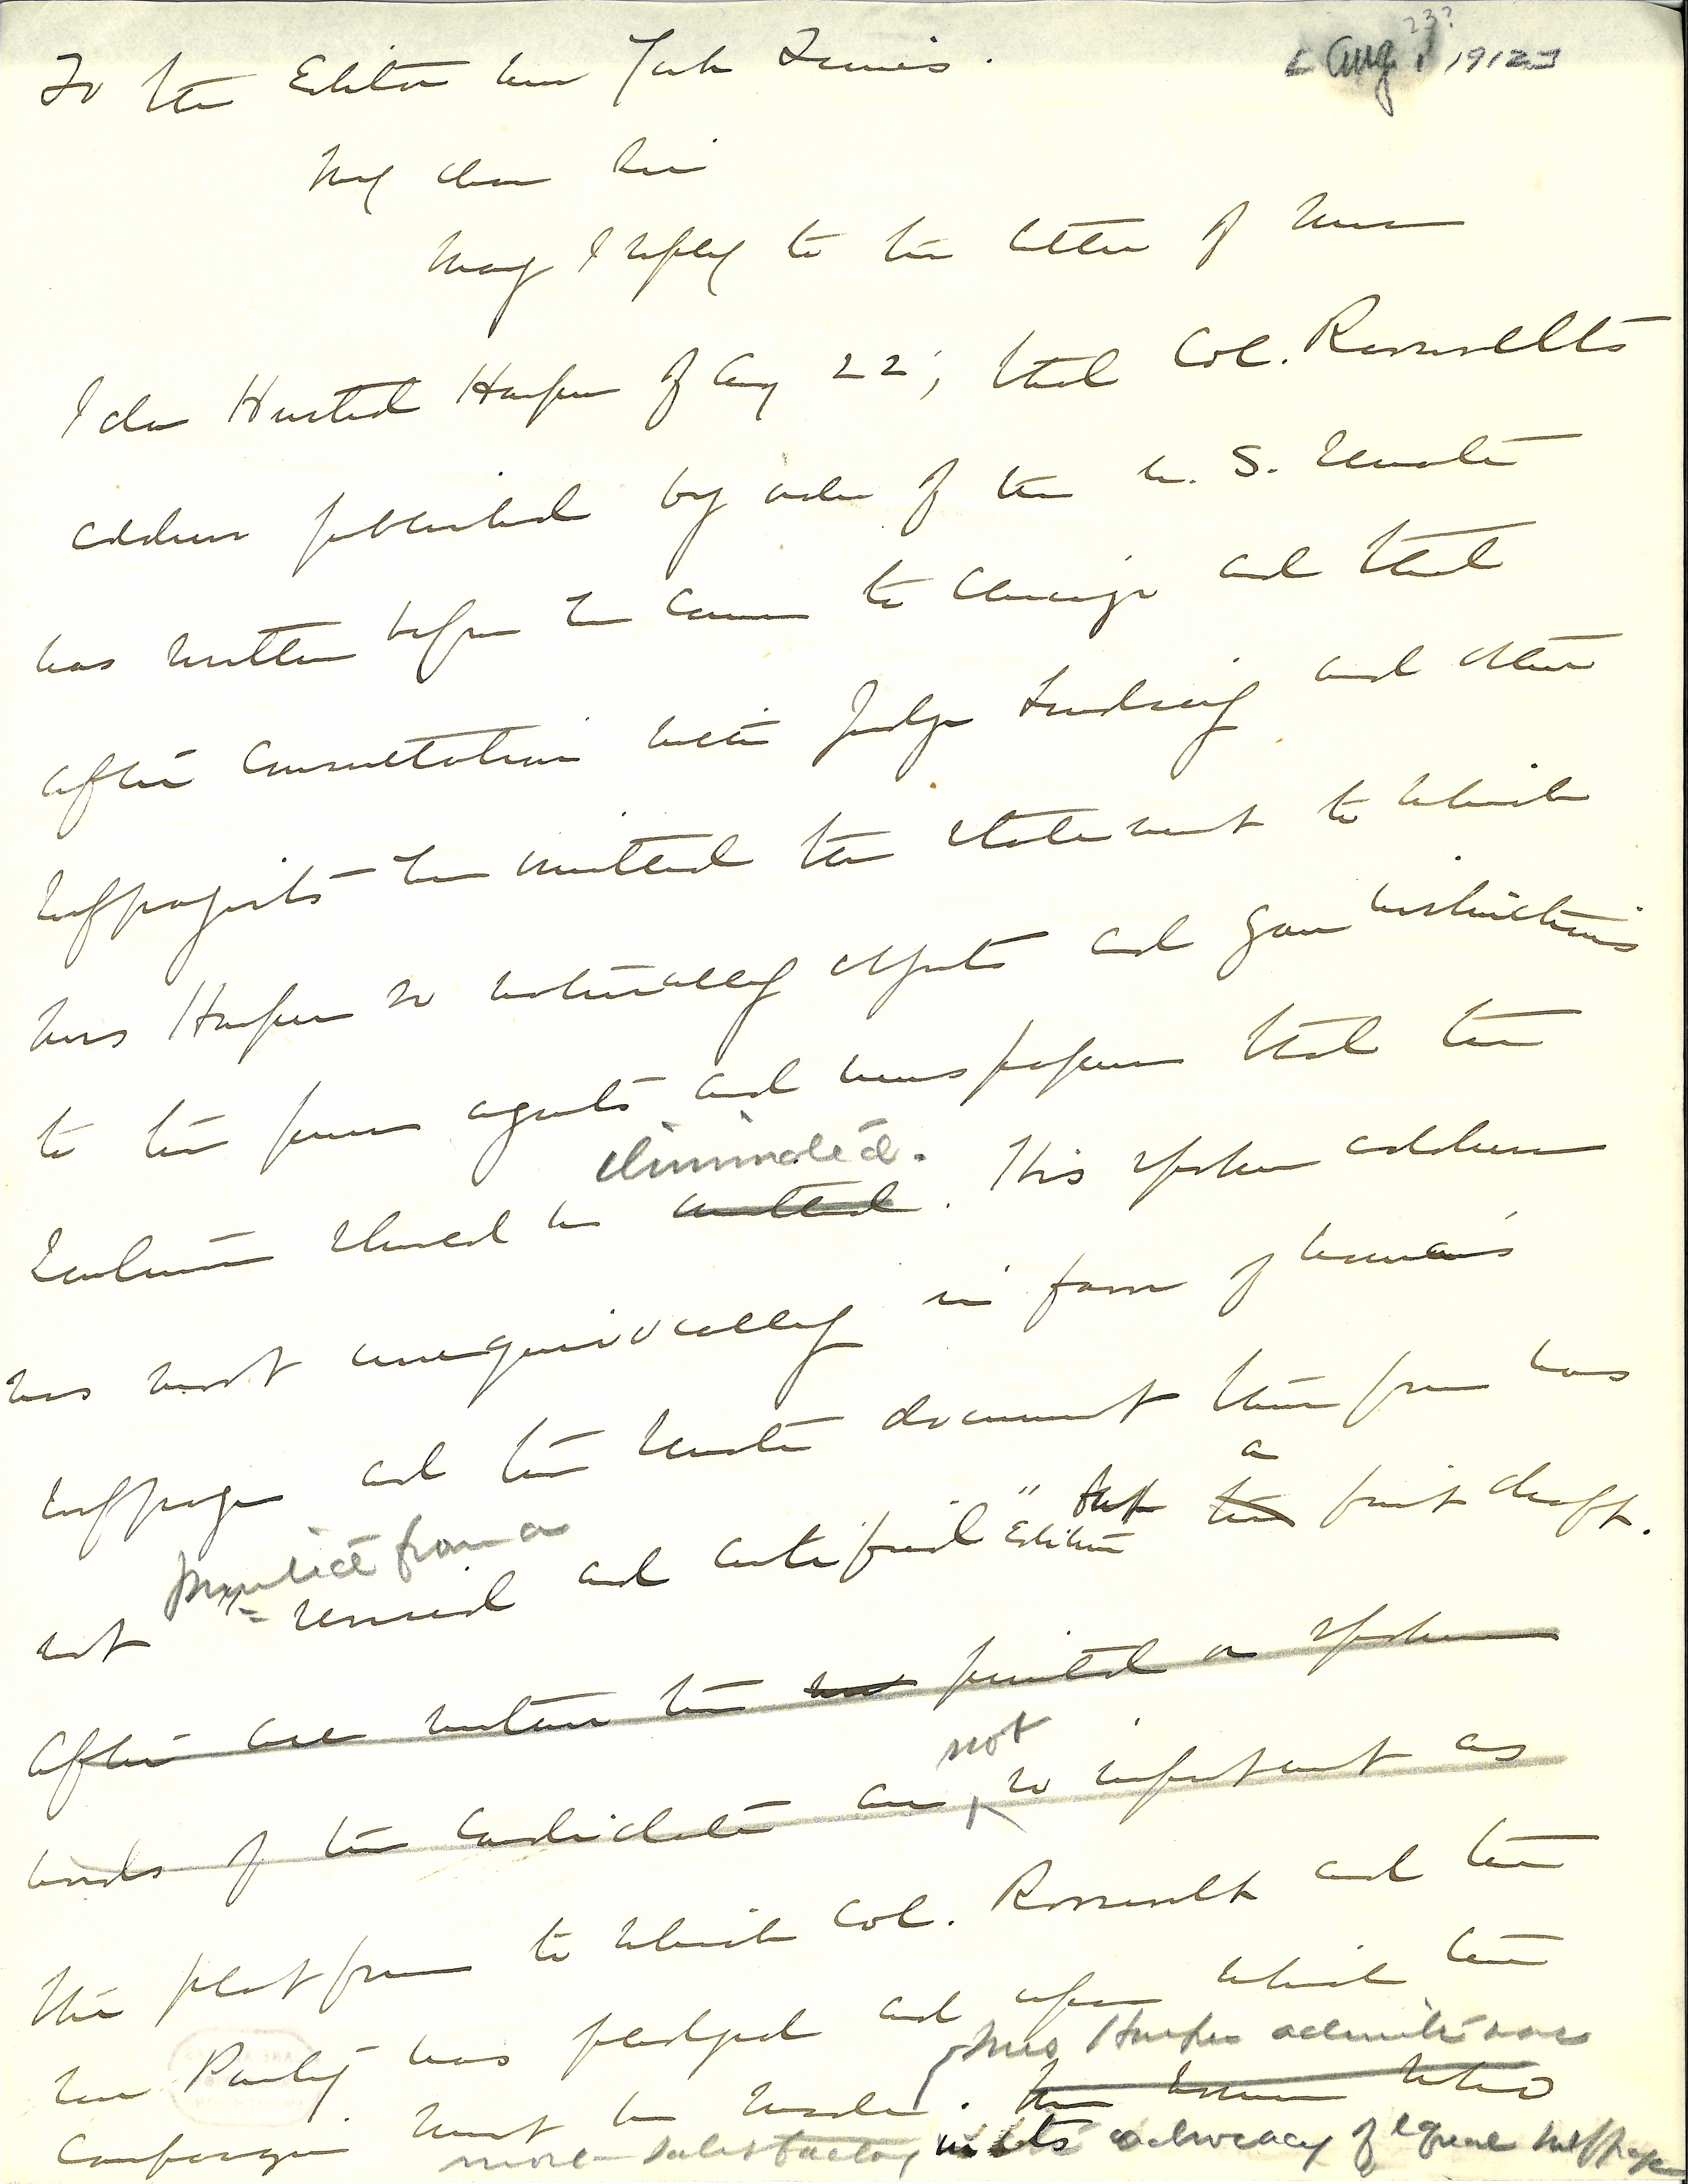 [Aug 23? 1912]
To the Editor New York Times.
My dear Sir
May I reply to the letter of Mrs
Ida Husted Harper of Aug 22; that Col. Roosevelt's
address published by order of the U. S. Senate
was written before he came to Chicago and that
after consultation with Judge Lindsey and other
suffragists he omitted the statement to which
Mrs Harper so naturally objects and gave instructions
to the press agents and newspapers that the
eliminated.
sentence should be omitted. His spoken address
was most unequivocally in favor of woman's
suffrage and the Senate document therefore was
a
not printed from a "revised and certified" Edition but the first draft.
After all neither the printed or spoken
not
words of the candidate are so important as
the platform to which Col. Roosevelt and the
new Party was pledged and upon which the
Mrs Harper admits was
campaign must be made. 
more satisfactory in its advocacy of equal suffrage